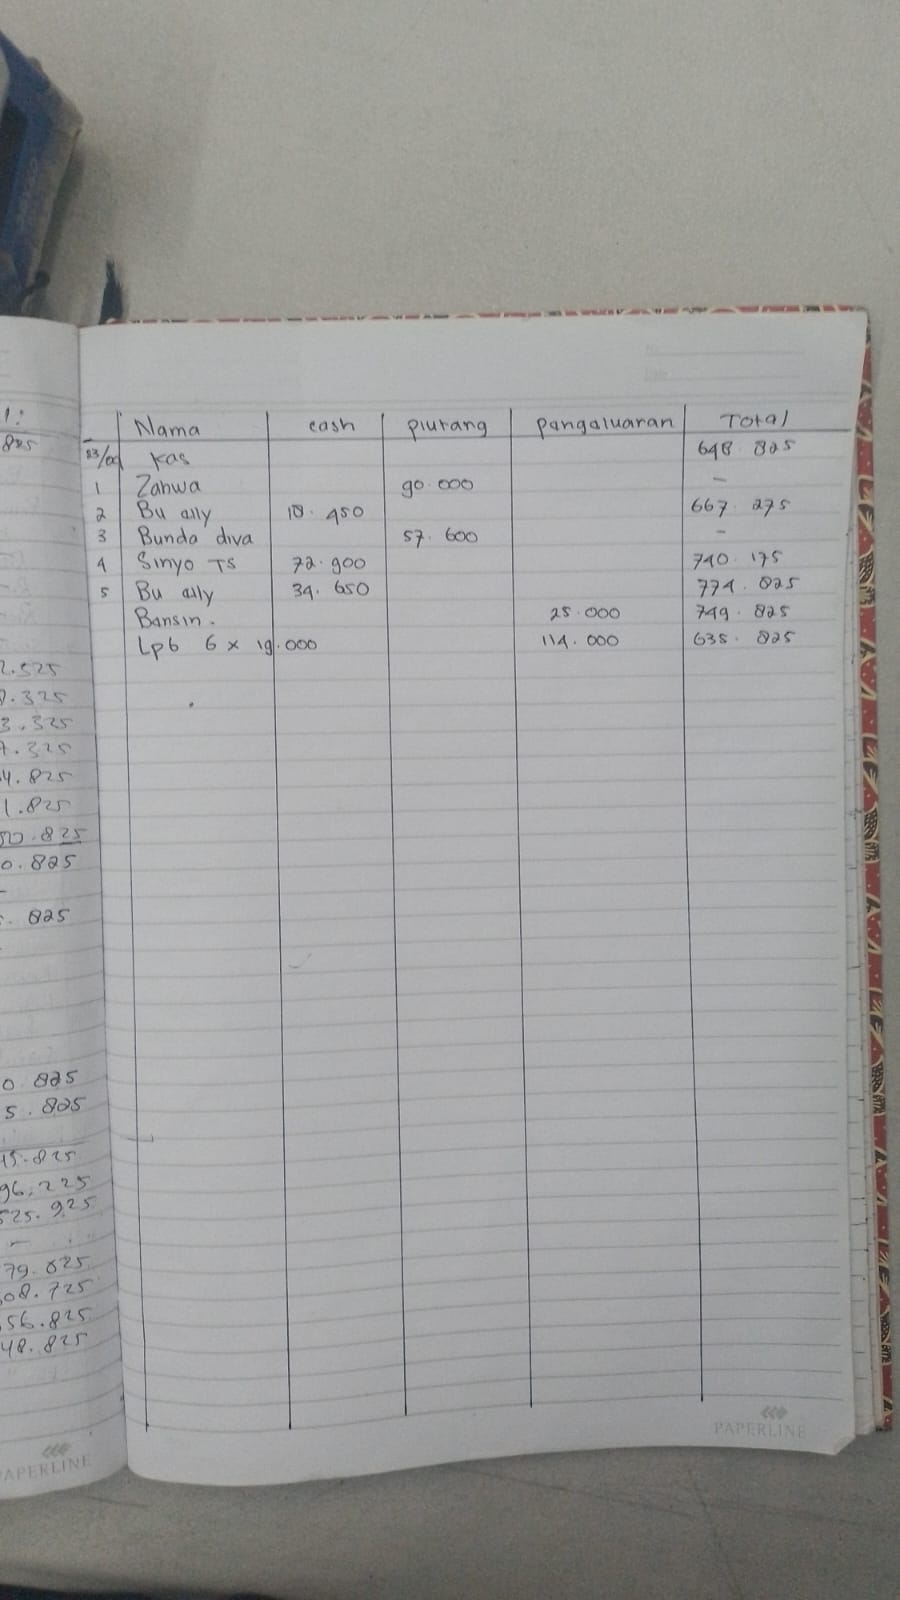 Nama cash piutang pangaluaran Total
kas 648.825
1 Zahwa 90.000 -
2 Bu ally 18.450 667.275
3 Bunda diva 57.600 -
4 Sinyo TS 72.900 740.175
5 Bu ally 34.650 774.825
Bansin. 25.000 749.825
Lpb 6 x 19.000 114.000 635.825
PAPERLINE
825
.325
.325
.825
1.825
.825
0.825
825
0 825
5.825
.825
96.225
525.925
-
79.625
08.725
56.825
48.825
PAPERLINE